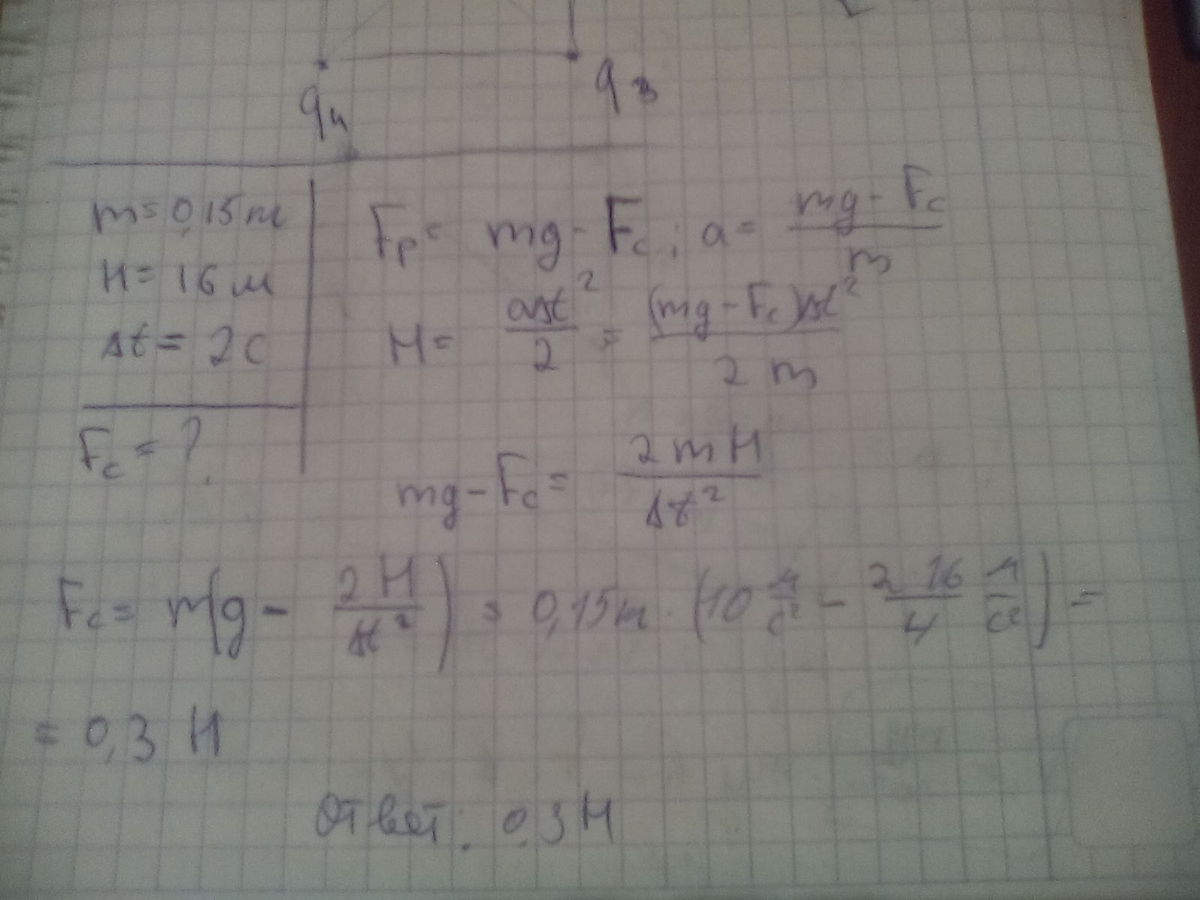 q₄ q₃
m = 0,15 т
H = 16 м
Δt = 2 c
F_c = ?
F_p = mg - F_c ; a = (mg - F_c)/m
H = aΔt²/2 = (mg - F_c)Δt²/2m
mg - F_c = 2mH/Δt²
F_c = m(g - 2H/Δt²) = 0,15 т · (10 м/c² - 2 16/4 м/c²) =
= 0,3 H
Ответ: 0,3 H